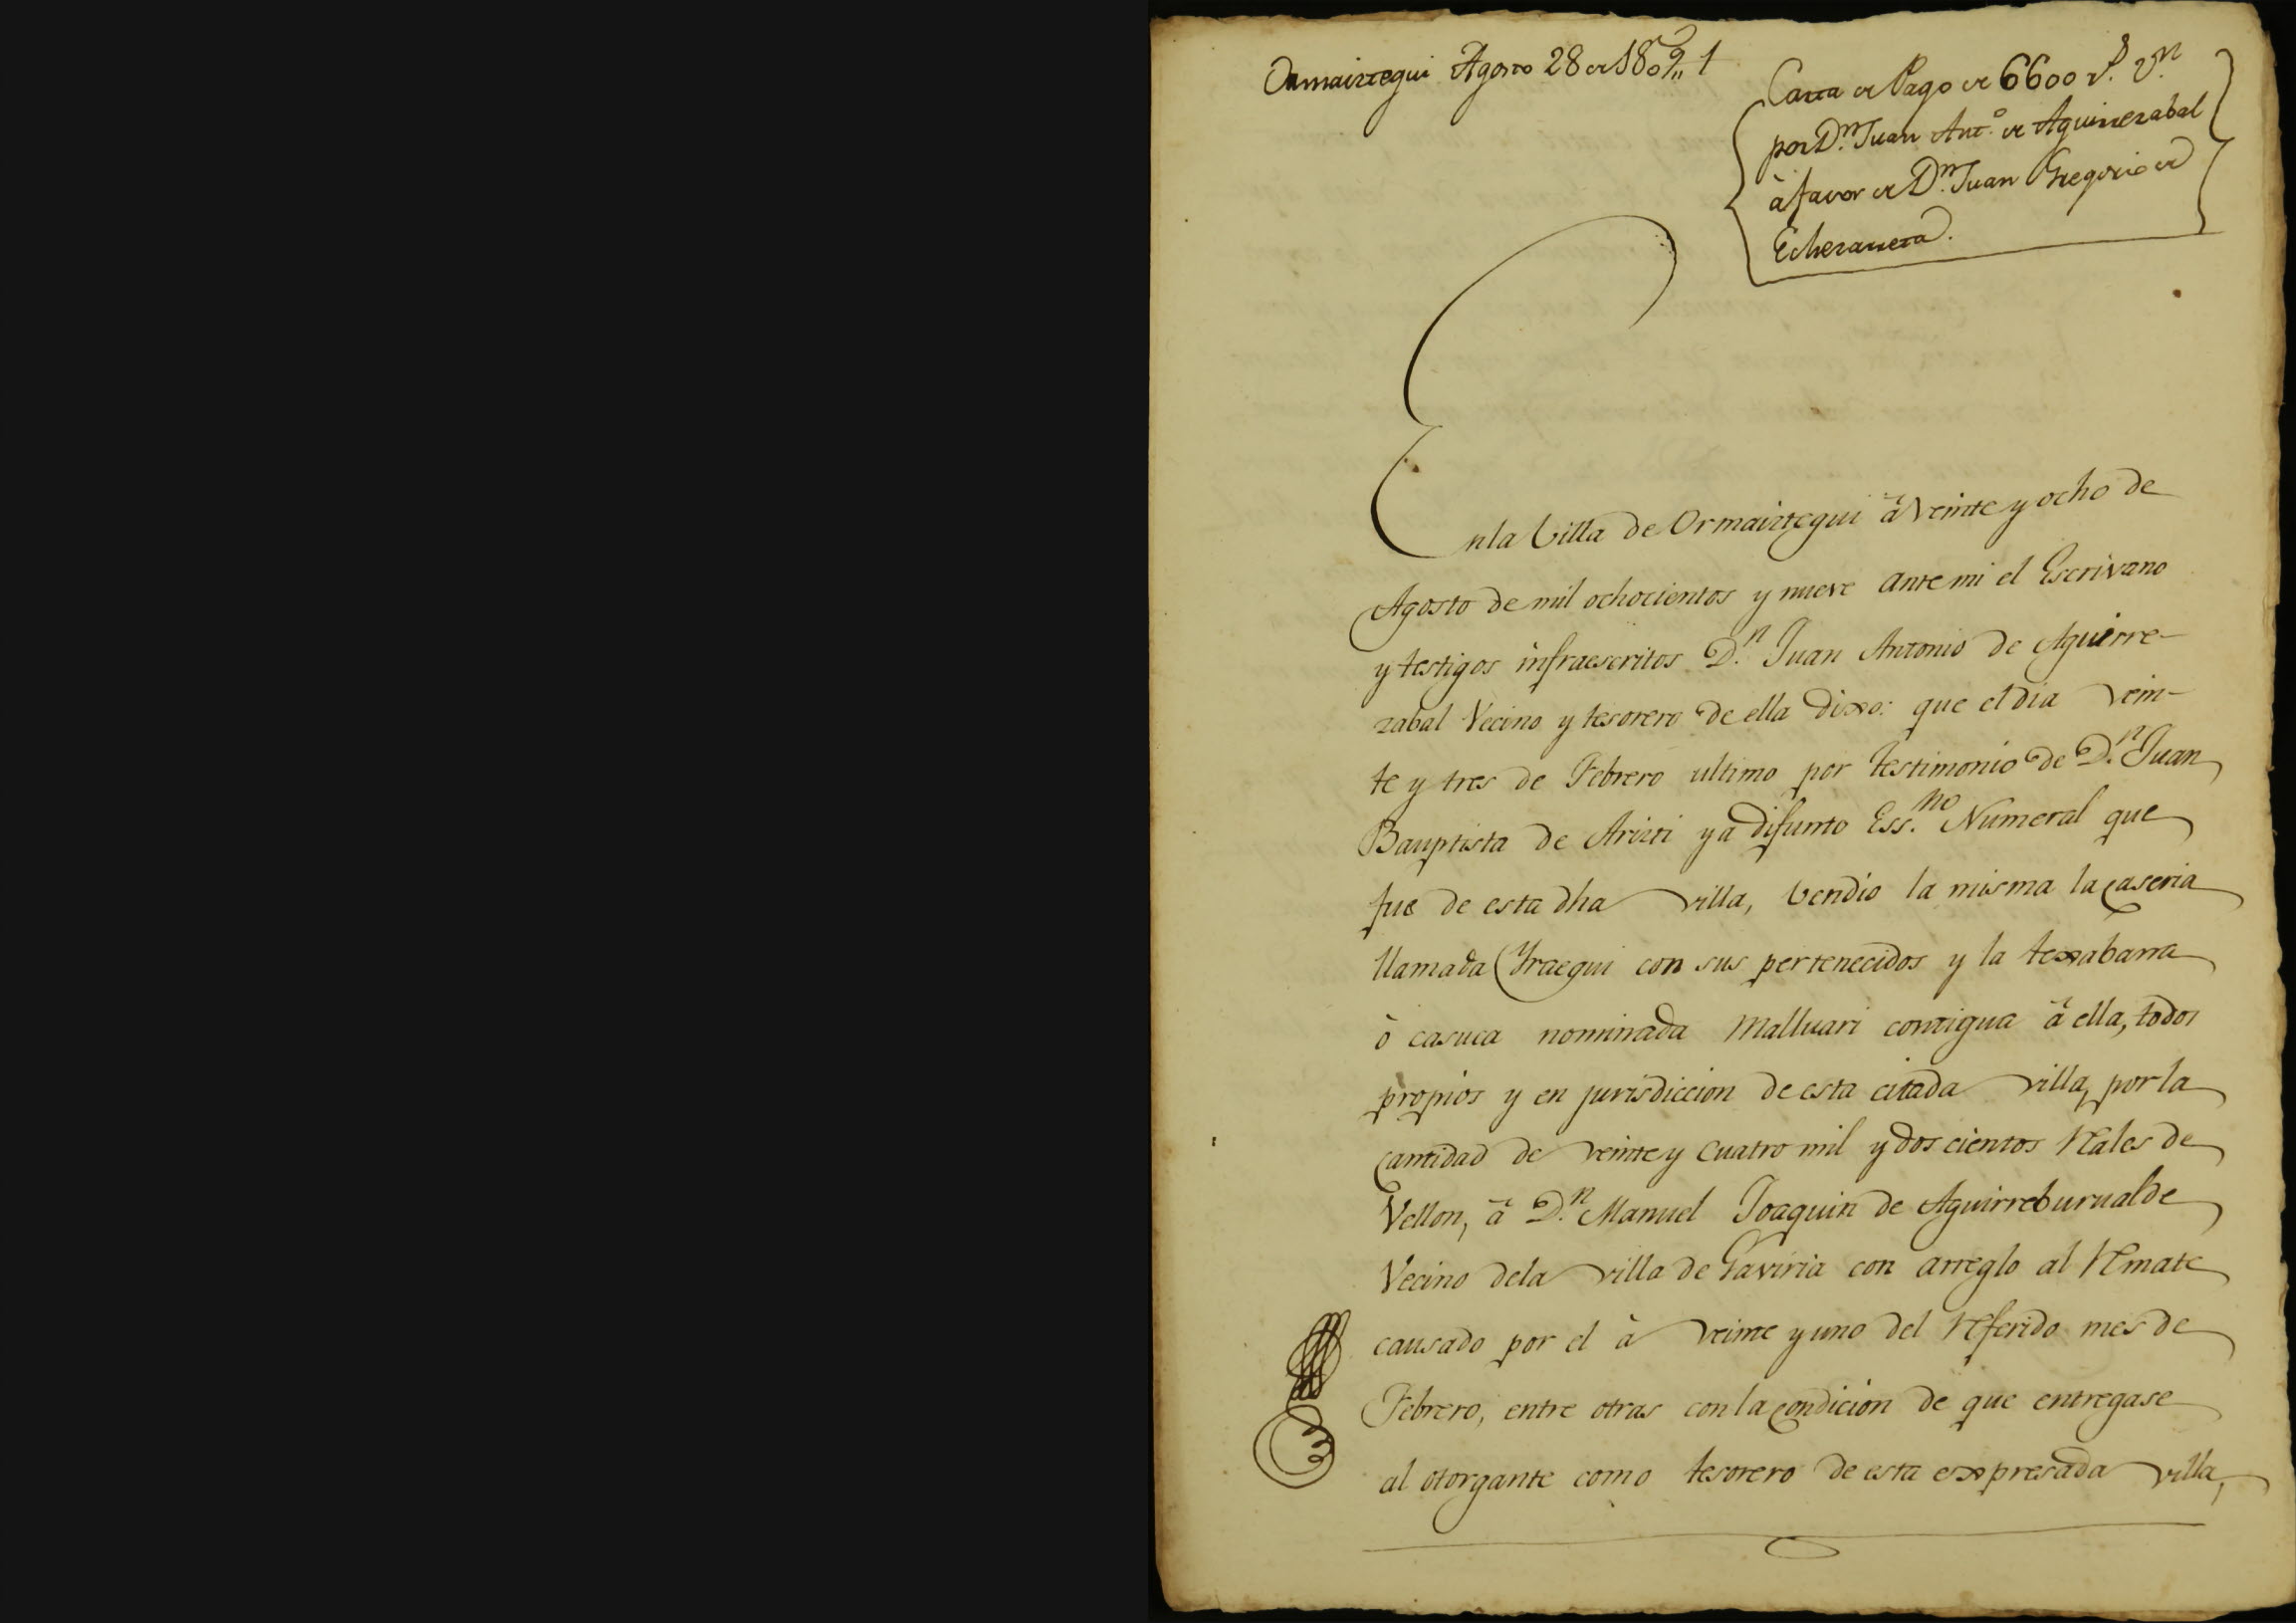 Ormaiztegui Agosto 28 de 1809,, 1
Carta de Pago de 6600 r.s v.n
por D.n Juan Ant.o de Aguirrezabal
à favor de D.n Juan Gregorio de
Echezarreta.
En la Villa de Ormaiztegui â veinte y ocho de
Agosto de mil ochocientos y nueve ante mi el Escrivano
y testigos infraescritos D.n Juan Antonio de Aguirre-
zabal Vecino y tesorero de ella dixo: que el dia vein-
te y tres de Febrero ultimo por testimonio de D.n Juan
Bauptista de Arizti ya difunto Ess.no Numeral que
fue de esta dha villa, vendio la misma la caseria
llamada Yraegui con sus pertenecidos y la texabarra
ò casuca nominada Malluari contigua â ella, todos
propios y en jurisdiccion de esta citada villa, por la
cantidad de veinte y cuatro mil y dos cientos Rales de
Vellon, â D.n Manuel Joaquin de Aguirreburualde
Vecino dela villa de Gaviria con arreglo al Rmate
causado por el à veinte y uno del Rferido mes de
Febrero, entre otras con la condicion de que entregase
al otorgante como tesorero de esta expresada villa,